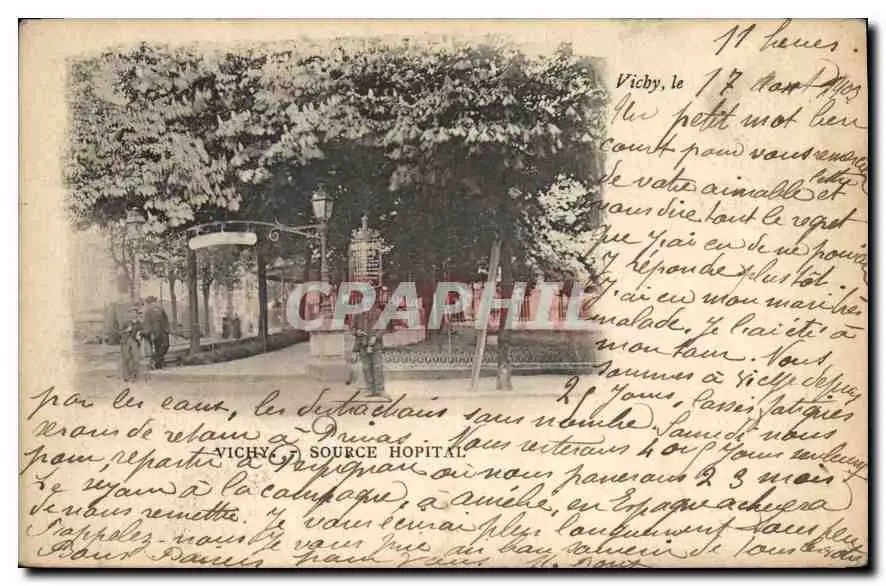 11 heures.
Vichy, le 17 Aout 1903
Un petit mot bien
court pour vous remercier
de votre aimable lettre et
vous dire tout le regret
que j'ai eu de ne pouvoir
y répondre plustôt.
J'ai eu mon mari très
malade. Je l'ai été à
mon tour. Nous
sommes à Vichy depuis
2 jours, assez fatigués
par les eaux, les distractions sans nombre. Samedi nous
serons de retour à Privas. Nous resterons 4 ou 5 jours seulement
pour repartir à Perpignan où nous passerons 2 3 mois
Le séjour à la campagne, à en Espagne achèvera
de nous remettre. Je vous écrirai plus longuement sous peu
Rappelez-nous je vous prie au bon souvenir de tous
Bons Baisers pour vous
VICHY. - SOURCE HOPITAL
CPAPHIL